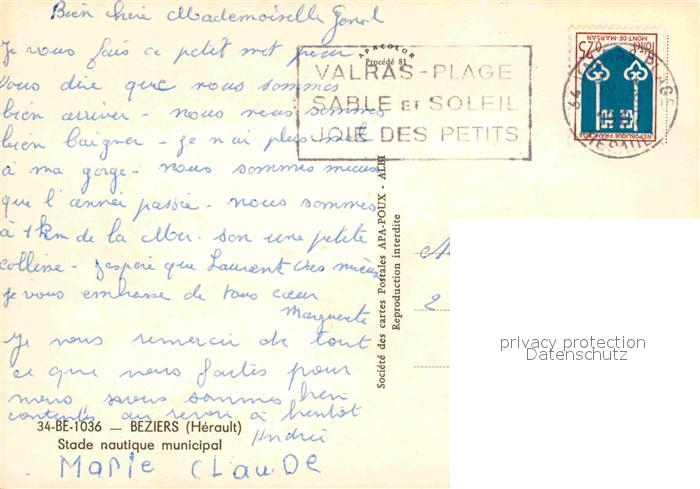 Bien chère Mademoiselle
Je vous fais ce petit mot pour
vous dire que nous sommes
bien arriver - nous nous sommes
bien baigner - je n'ai plus mal
à ma gorge - nous sommes mieux
que l'année passée - nous sommes
à 1 km de la Mer. son une petite
colline - J'espère que Laurent vas mieux
Je vous embrasse de tous cœur
Marguerite
Je vous remercie de tout
ce que vous faites pour
nous nous sommes bien
contents au revoir à bientôt
André
MARIE CLAUDE
34-BE-1036 — BEZIERS (Hérault)
Stade nautique municipal
APACOLOR
Procédé 81
VALRAS-PLAGE
SABLE ET SOLEIL
JOIE DES PETITS
Société des cartes Postales APA-POUX - ALBI
Reproduction interdite
0,25
POSTES
MONT-DE-MARSAN
REPUBLIQUE FRANÇAISE
34 VALRAS-PLAGE
HERAULT
2
privacy protection
Datenschutz